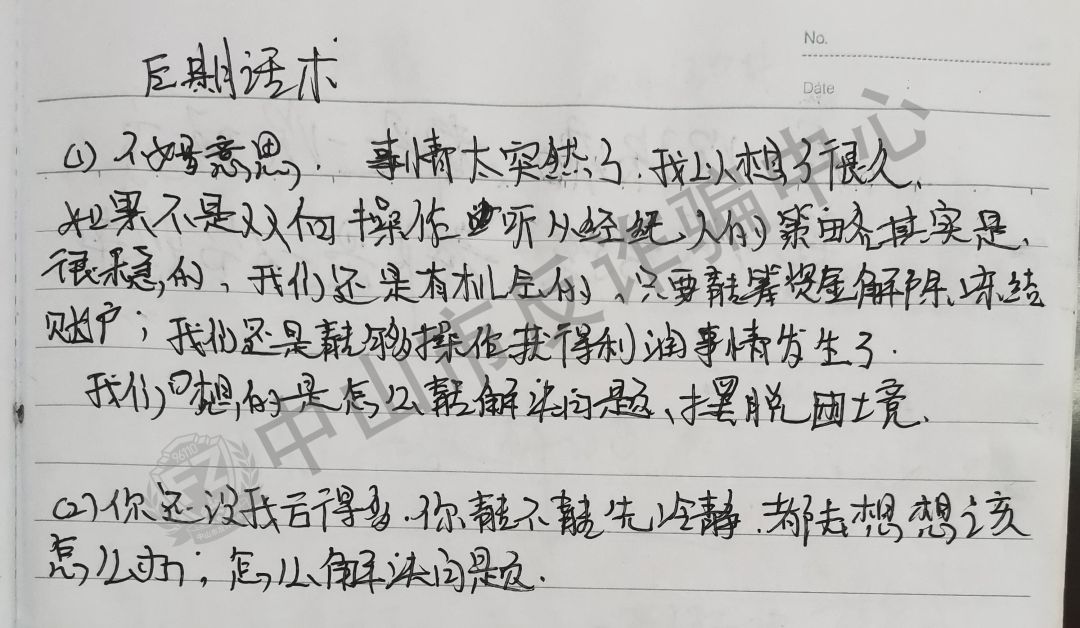 No.
Date
后期话术
(1) 不好意思, 事情太突然了.我以想了很久、
如果不是双向操作 听从经纪人的策略其实是、
很来稳的,我们还是有机会的、只要能筹资金解除冻结
账户;我们还是能够操作获得利润事情发生了.
我们想的是怎么能解决问题、摆脱困境、
(2)你还没我亏得多.你能不能先冷静.都去想想该
怎么办;怎么解决问题.
中山市反诈骗中心